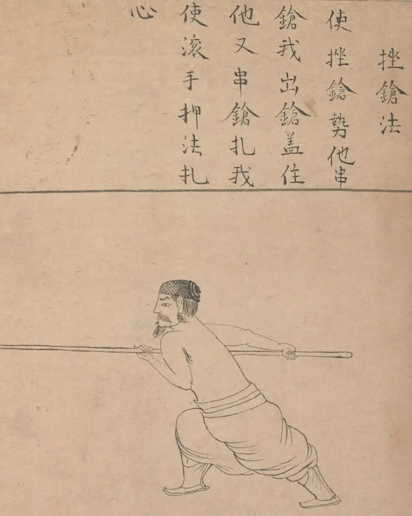 挫鎗法
使挫鎗勢他串
鎗我出鎗盖住
他又串鎗扎我
使滚手押法扎
心